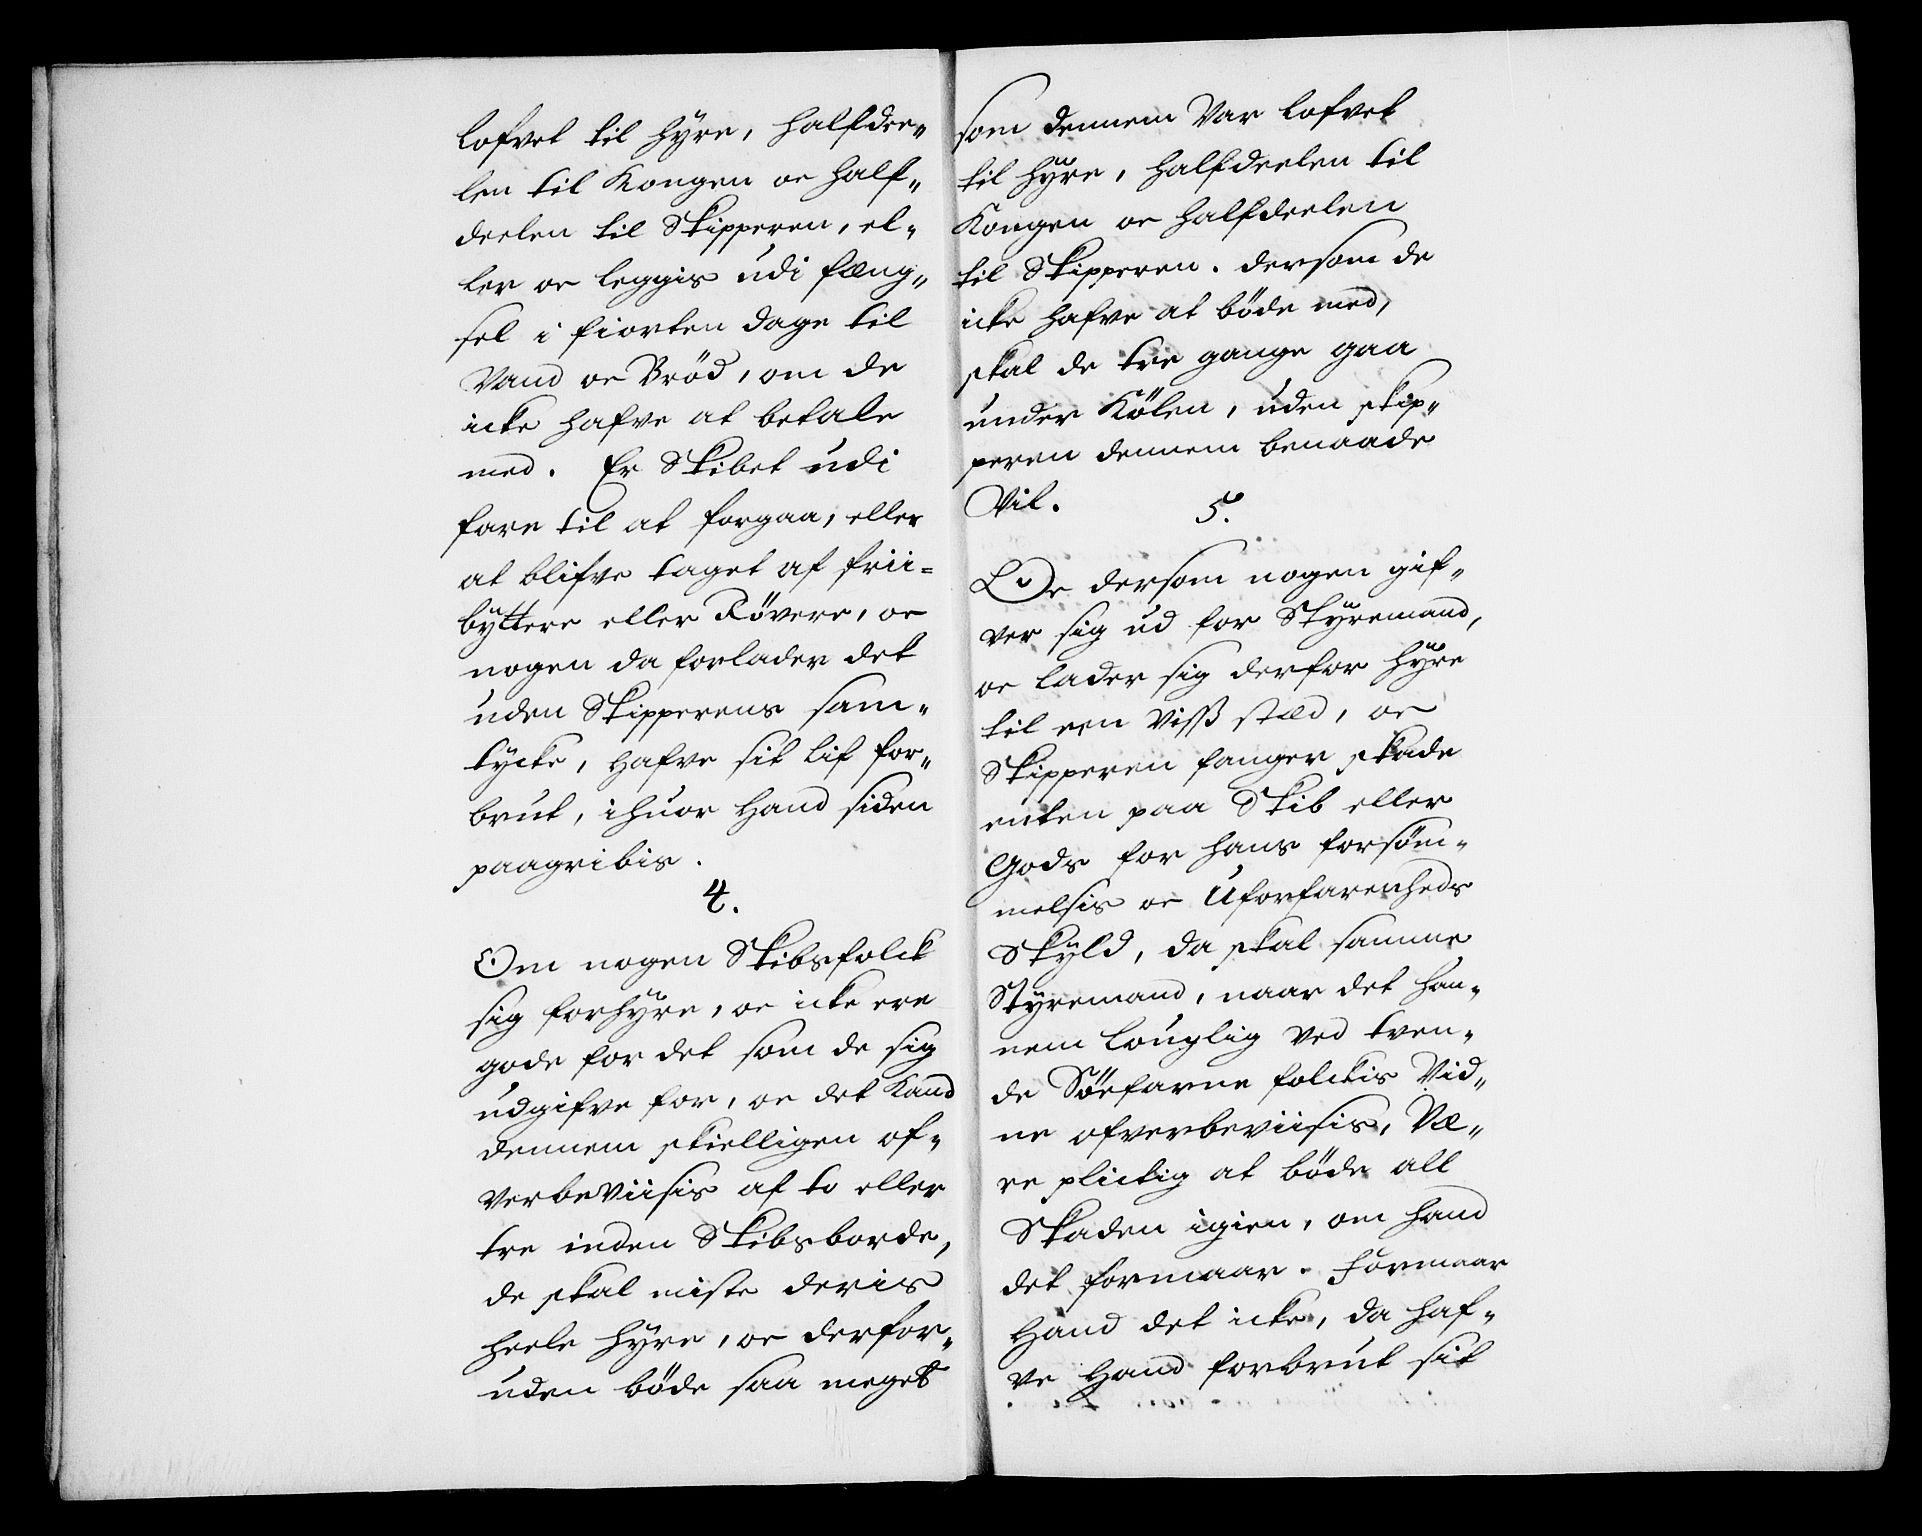 lofvet til hyre, halfdee„
len til Kongen oc half„
deelen til Skipperen, el„
ler oc leggis udi fæng„
sel i fiorten dage til
Vand oc Brød, om de
icke hafve at betale
med. Er Skibet udi
fare til at forgaa, eller
at blifve taget af frii=
byttere eller Røvere, oc
nogen da forlader det
uden Skipperens sam„
tycke, hafve sit lif for„
brut, i huor Hand siden
paagribis.
4.
Om nogen Skibsfolck
sig forhyre, oc icke ere
gode for det som de sig
udgifve for, oc det Kand
dennem skielligen of„
verbeviisis af to eller
tre inden Skibsborde,
de skal miste deris
heele hyre, oc derfor„
uden bøde saa meget
som dennem Var lofvet
til hyre, halfdeelen til
Kongen oc halfdeelen
til Skipperen. dersom de
icke hafve at bøde med,
skal de tre gange gaa
under Kølen, uden skip„
peren dennem benaade
Vil.
5.
Oc dersom nogen gif„
ver sig ud for Styremand,
oc lader sig derfor hyre
til een Viss stæd, oc
Skipperen fanger skade
enten paa Skib eller
Gods for hans forsøm„
melsis oc Uforfarenheds
Skyld, da skal samme
Styremand, naar det han„
nem louglig ved tven„
de Søefarne folckis Vid„
ne ofverbeviisis, Væ„
re plictig at bøde all
Skaden igien, om hand
det formaar. Formaar
Hand det icke, da haf„
ve Hand forbrut sit